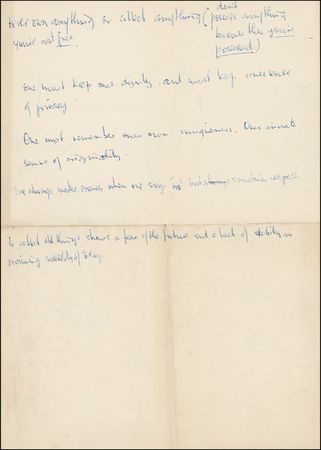 never own anything or collect anything (don't
possess anything
because then you're
possessed)
you're not free
one must keep ones dignity and must keep ones sense
of privacy
One must remember ones own uniqueness. Ones innate
sense of originality.
One always makes enemies when one says 'no' but always sometimes respect
to collect old things shows a fear of the future and a lack of ability in
of today